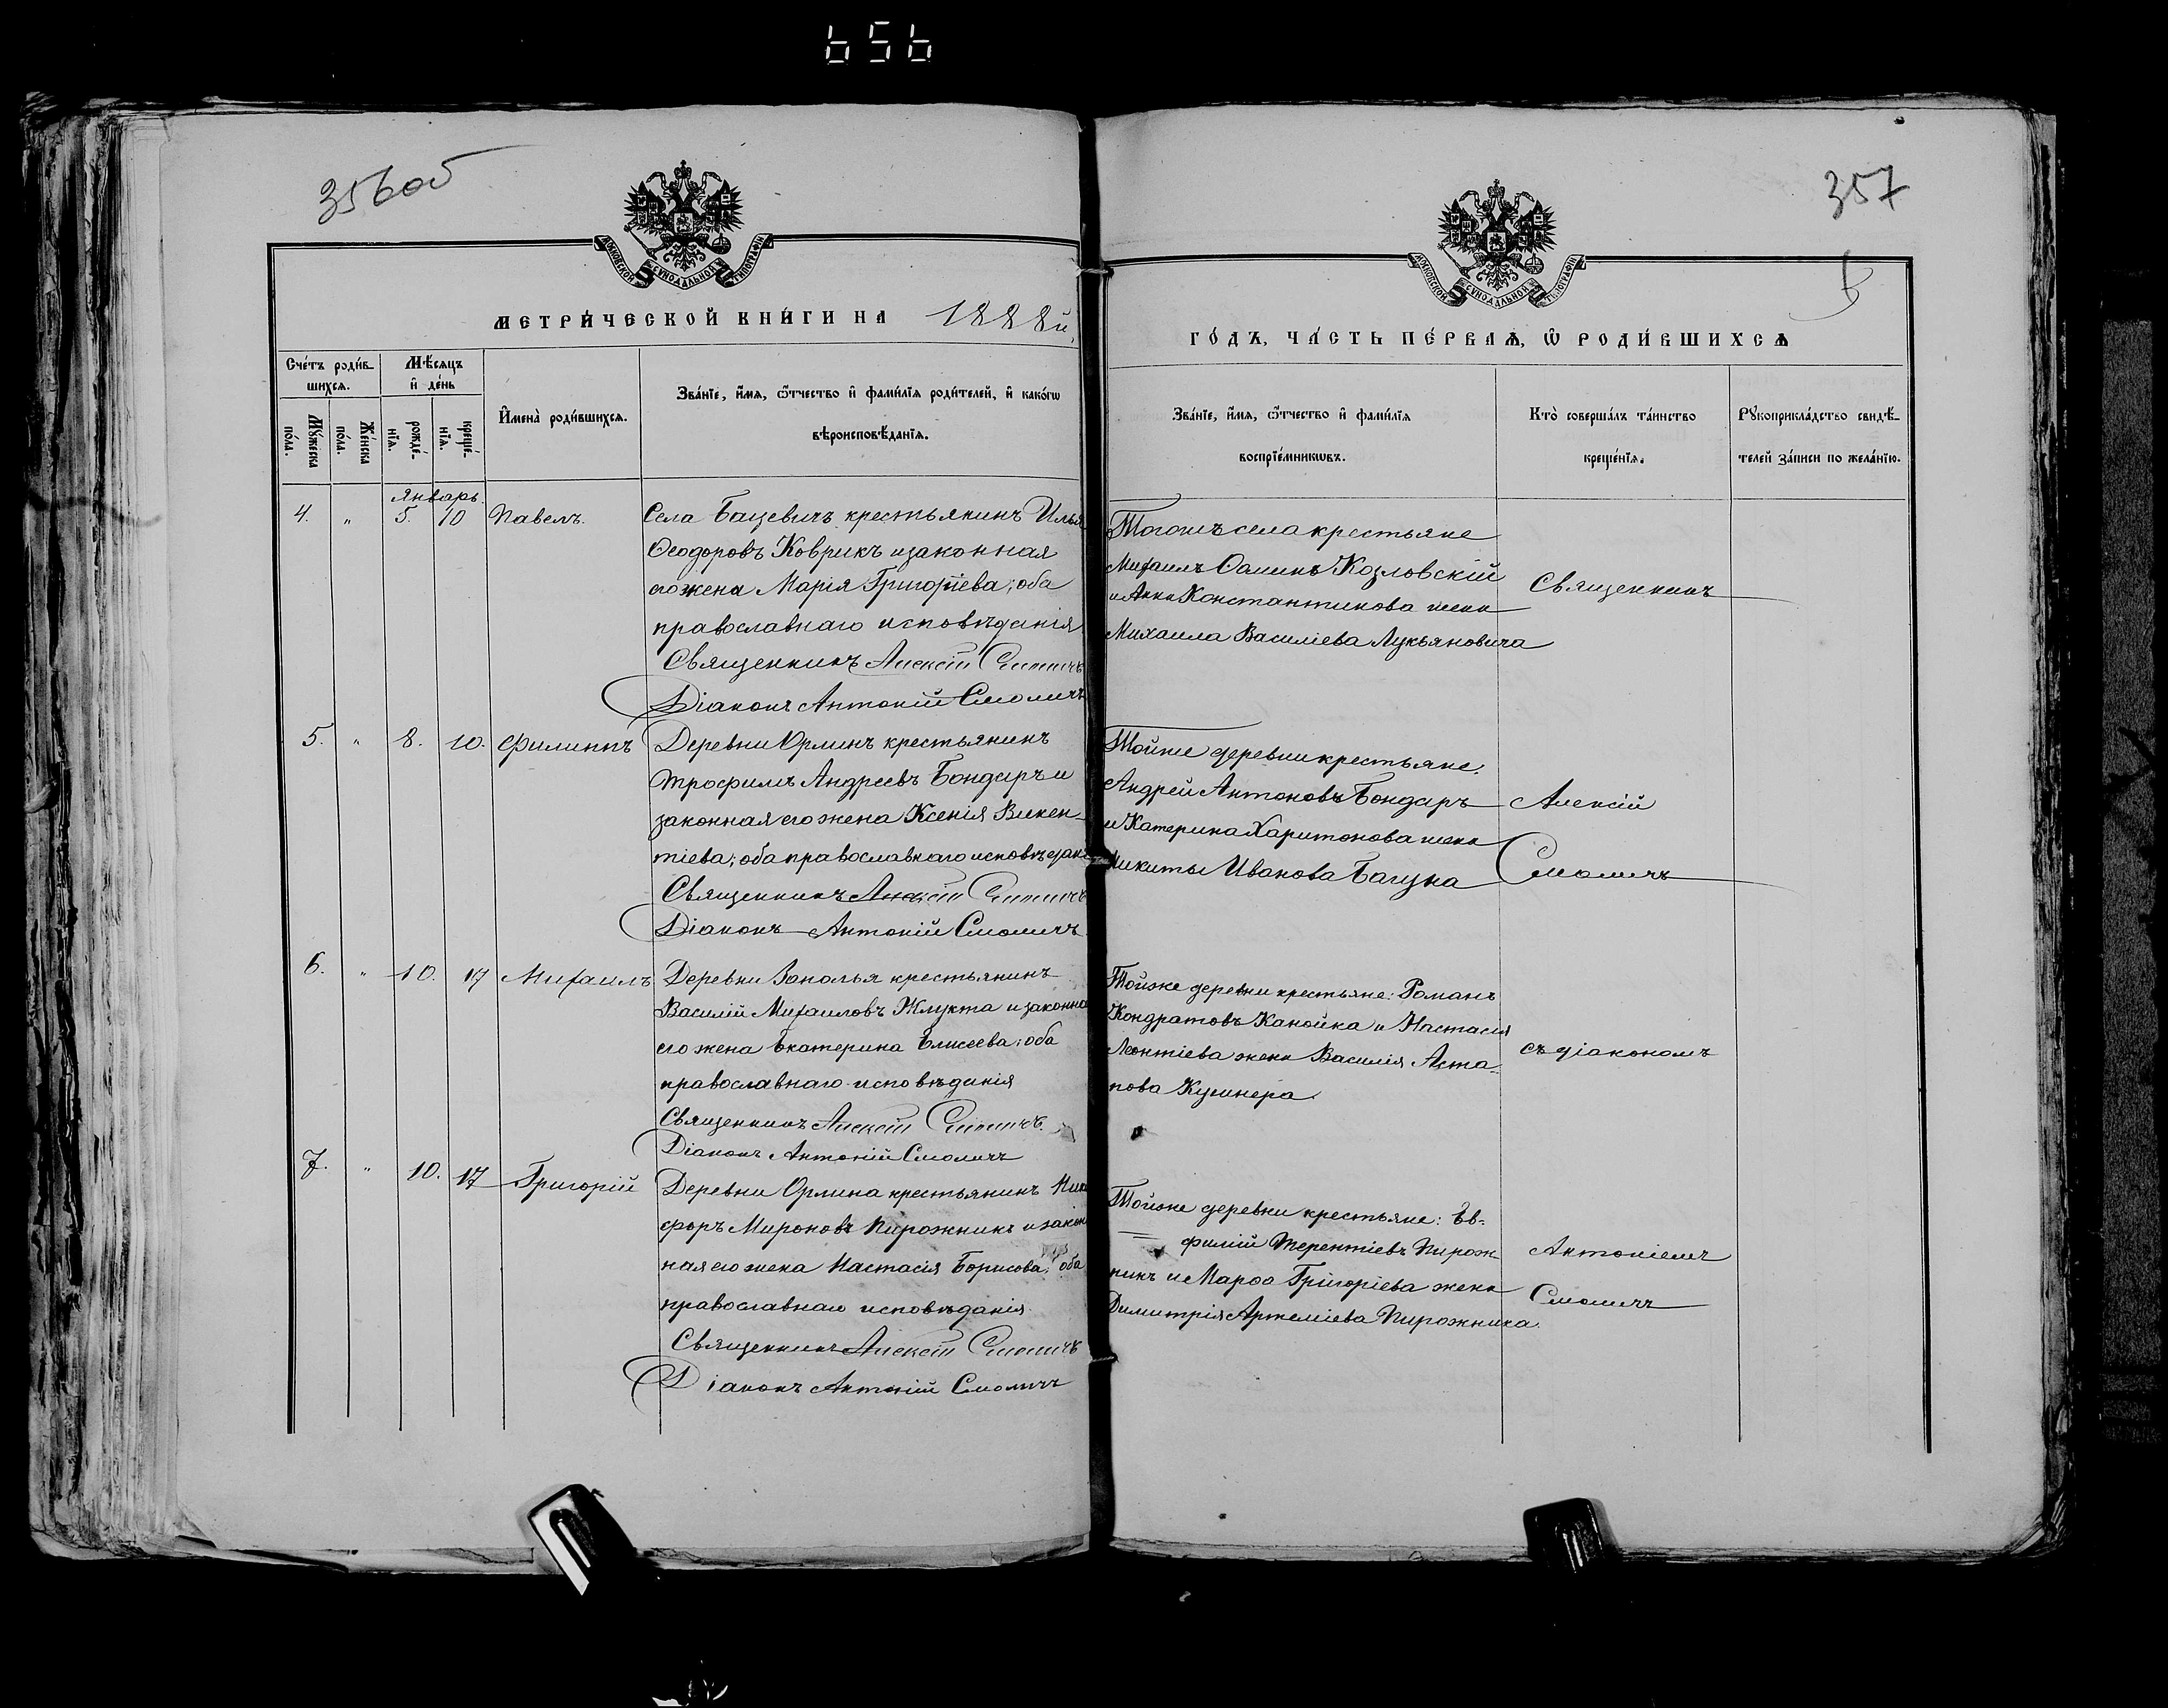 656
356об
357
5
МОСКОВСКОЙ СѴНОДАЛЬНОЙ ТИПОГРАФІИ
МОСКОВСКОЙ СѴНОДАЛЬНОЙ ТИПОГРАФІИ
МЕТРИ́ЧЕСКОЙ КНИ́ГИ НА 1888й
ГО́ДЪ, ЧА́СТЬ ПЕ́РВАѦ, Ѿ РОДИ́ВШИХСѦ
Сче́тъ роди́в-
шихсѧ.
Мѣ́сѧцъ
и҆ де́нь
Мꙋ́жеска
по́ла.
Же́нска
по́ла.
рожде́-
нїѧ.
креще́-
нїѧ.
И҆мена̀ роди́вшихсѧ.
Зва́нїе, и҆́мѧ, ѻ҆́тчество и҆ фами́лїѧ роди́телей, и҆ како́гѡ
вѣроисповѣ́данїѧ.
Зва́нїе, и҆́мѧ, ѻ҆́тчество и҆ фами́лїѧ
воспрїе́мникѡвъ.
Кто̀ соверша́лъ та́инство
креще́нїѧ.
Рꙋкоприкла́дство свидѣ́-
телей за́писи по жела́нїю.
Январь.
4. " 5. 10 Павелъ.
Села Бацевичъ крестьянинъ Илья
Ѳеодоровъ Коврикъ и законная
его жена Марія Григоріева; оба
православнаго исповѣданія
Священникъ Алексій Смоличъ
Діаконъ Антоній Смоличъ
Тогожъ села крестьяне
Михаилъ Ѳоминъ Козловскій
и Анна Константинова жена
Михаила Василіева Лукьяновича
Священникъ
5. " 8. 10. Филиппъ
Деревни Орлинъ крестьянинъ
Трофимъ Андреевъ Бондаръ и
законная его жена Ксенія Викен-
тіева; оба православнаго исповѣдані
Священникъ Алексій Смоличъ
Діаконъ Антоній Смоличъ
Тойже деревни крестьяне.
Андрей Антоновъ Бондаръ
и Катерина Харитонова жена
Никиты Иванова Багуна
Алексій
Смоличъ
6. " 10. 17 Михаилъ
Деревни Заполья крестьянинъ
Василій Михаиловъ Жлукта и законна
его жена Екатерина Елисеева; оба
православнаго исповѣданія
Священникъ Алексій Смоличъ.
Діаконъ Антоній Смоличъ
Тойже деревни крестьяне: Романъ
Кондратовъ Канойка и Настасія
Леонтіева жена Василія Аста-
пова Кушнера.
съ діакономъ
7. " 10. 17 Григорій
Деревни Орлина крестьянинъ Ники
форъ Мироновъ Пирожникъ и закон
ная его жена Настасія Борисова; оба
православнаго исповѣданія
Священникъ Алексій Смоличъ
Діаконъ Антоній Смоличъ
Тойже деревни крестьяне: Ев-
фимій Терентіевъ Пирож
никъ и Марѳа Григоріева жена
Димитрія Артеміева Пирожника.
Антоніемъ
Смоличъ